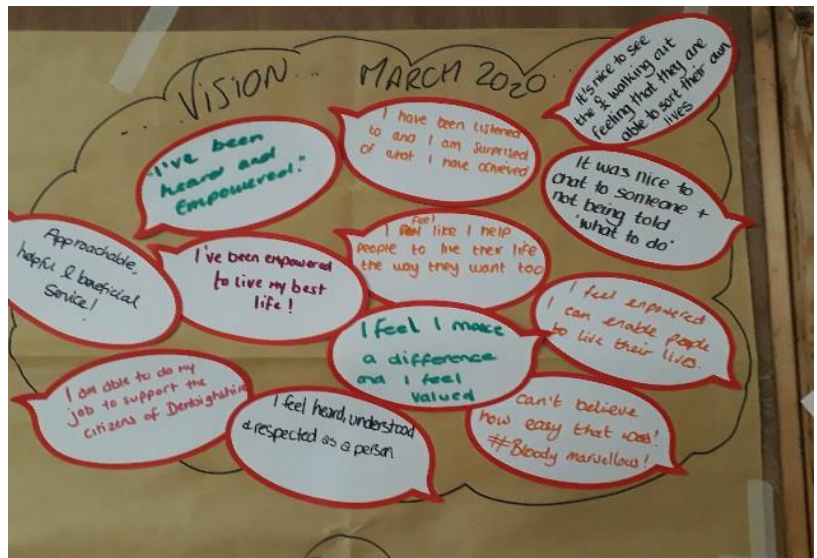 ...VISION... MARCH 2020...
It's nice to see
the & walking out
feeling that they are
able to sort their own
lives
I have been listened
to and I am surprised
of what I have achieved
"I've been
heard and
Empowered."
It was nice to
chat to someone +
not being told
'what to do'
Approachable,
helpful & beneficial
Service!
I've been empowered
to live my best
life!
I feel like I help
people to live their life
the way they want too
I feel empowered
I can enable people
to live their lives.
I feel I make
a difference
and I feel
valued
I am able to do my
job to support the
citizens of Denbighshire
I feel heard, understood
& respected as a person
Can't believe
how easy that was!
#Bloody marvellous!